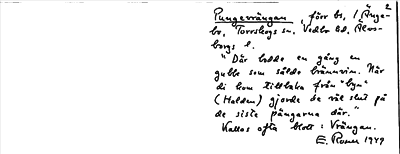 Pungevrången, förr bs, 1 Ånge-²
bo, Torrskogs sn, Vedbo hd, Älvs-
borgs l.
"Där bodde en gång en
gubbe som sålde brännvin. När
di kom tillbaka från "byn"
(Halden) gjorde de väl slut på
de siste pängarna där."
Kallas ofta blott: Vrången.
E. Rosner 1949